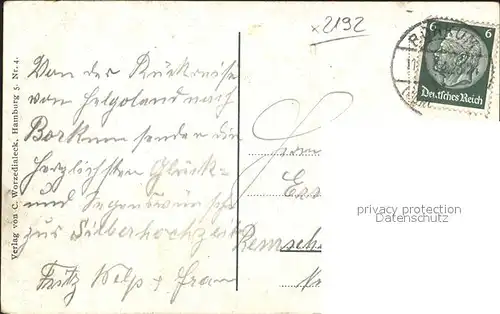 x2192
6 6
Deutsches Reich
Von der Rückreise
von Helgoland nach
Borkum senden die
herzlichsten Glück-
und Segenswünsche
zur Silberhochzeit
Fritz Kelp + Frau
Herrn
Remsche
privacy protection
Datenschutz
Verlag von C. Worzedialeck, Hamburg 5. Nr. 4.